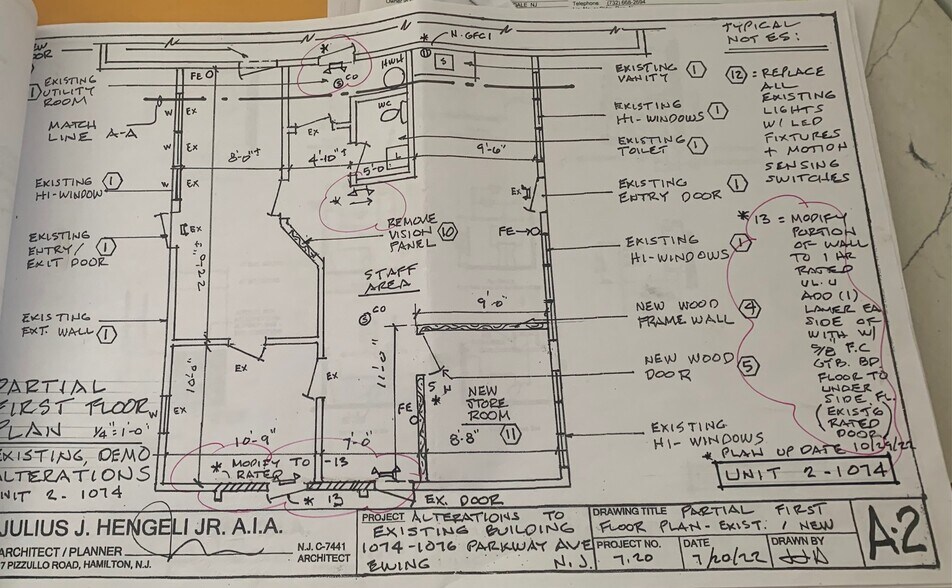 DALE, NJ
Telephone: (732) 668-2694
EXISTING
UTILITY
ROOM
1
MATCH
LINE A-A
EXISTING
HI-WINDOW
1
EXISTING
ENTRY/
EXIT DOOR
1
EXISTING
EXT. WALL
1
PARTIAL
FIRST FLOOR
PLAN 1/4"=1'-0"
EXISTING, DEMO
ALTERATIONS
UNIT 2-1074
FE
W
EX
W
EX
W
EX
EX
W
EX
8'-0"±
4'-10"±
5'-0"
9'-6"
22'-9"±
10'-0"
EX
EX
EX
*
S CO
HWH
WC
L
S
* N-GFCI
*
REMOVE
VISION
PANEL 10
STAFF
AREA
S CO
EX
FE
9'-0"
11'-0"
5
*
FE
NEW
STORE
ROOM
11
8'-8"
10'-9"
7'-0"
* MODIFY TO -13
RATED
* 13
EX. DOOR
EXISTING
VANITY
1
EXISTING
HI-WINDOWS
1
EXISTING
TOILET
1
EXISTING
ENTRY DOOR
1
EXISTING
HI-WINDOWS
1
NEW WOOD
FRAME WALL
4
NEW WOOD
DOOR
5
EXISTING
HI-WINDOWS
TYPICAL
NOTES:
12 = REPLACE
ALL
EXISTING
LIGHTS
W/ LED
FIXTURES
+ MOTION
SENSING
SWITCHES
* 13 = MODIFY
PORTION
OF WALL
TO 1 HR
RATED
UL. U
ADD (1)
LAMER EA
SIDE OF
WITH W/
5/8 F.C
GYB. BD.
FLOOR TO
UNDER
SIDE FL.
(EXIST'G
RATED
DOOR)
* PLAN UP DATE 10/29/22
UNIT 2-1074
JULIUS J. HENGELI JR. A.I.A.
ARCHITECT / PLANNER
7 PIZZULLO ROAD, HAMILTON, N.J.
N.J. C-7441
ARCHITECT
PROJECT ALTERATIONS TO
EXISTING BUILDING
1074-1076 PARKWAY AVE
EWING N.J.
DRAWING TITLE PARTIAL FIRST
FLOOR PLAN-EXIST. / NEW
PROJECT NO.
7.20
DATE
7/20/22
DRAWN BY
A-2